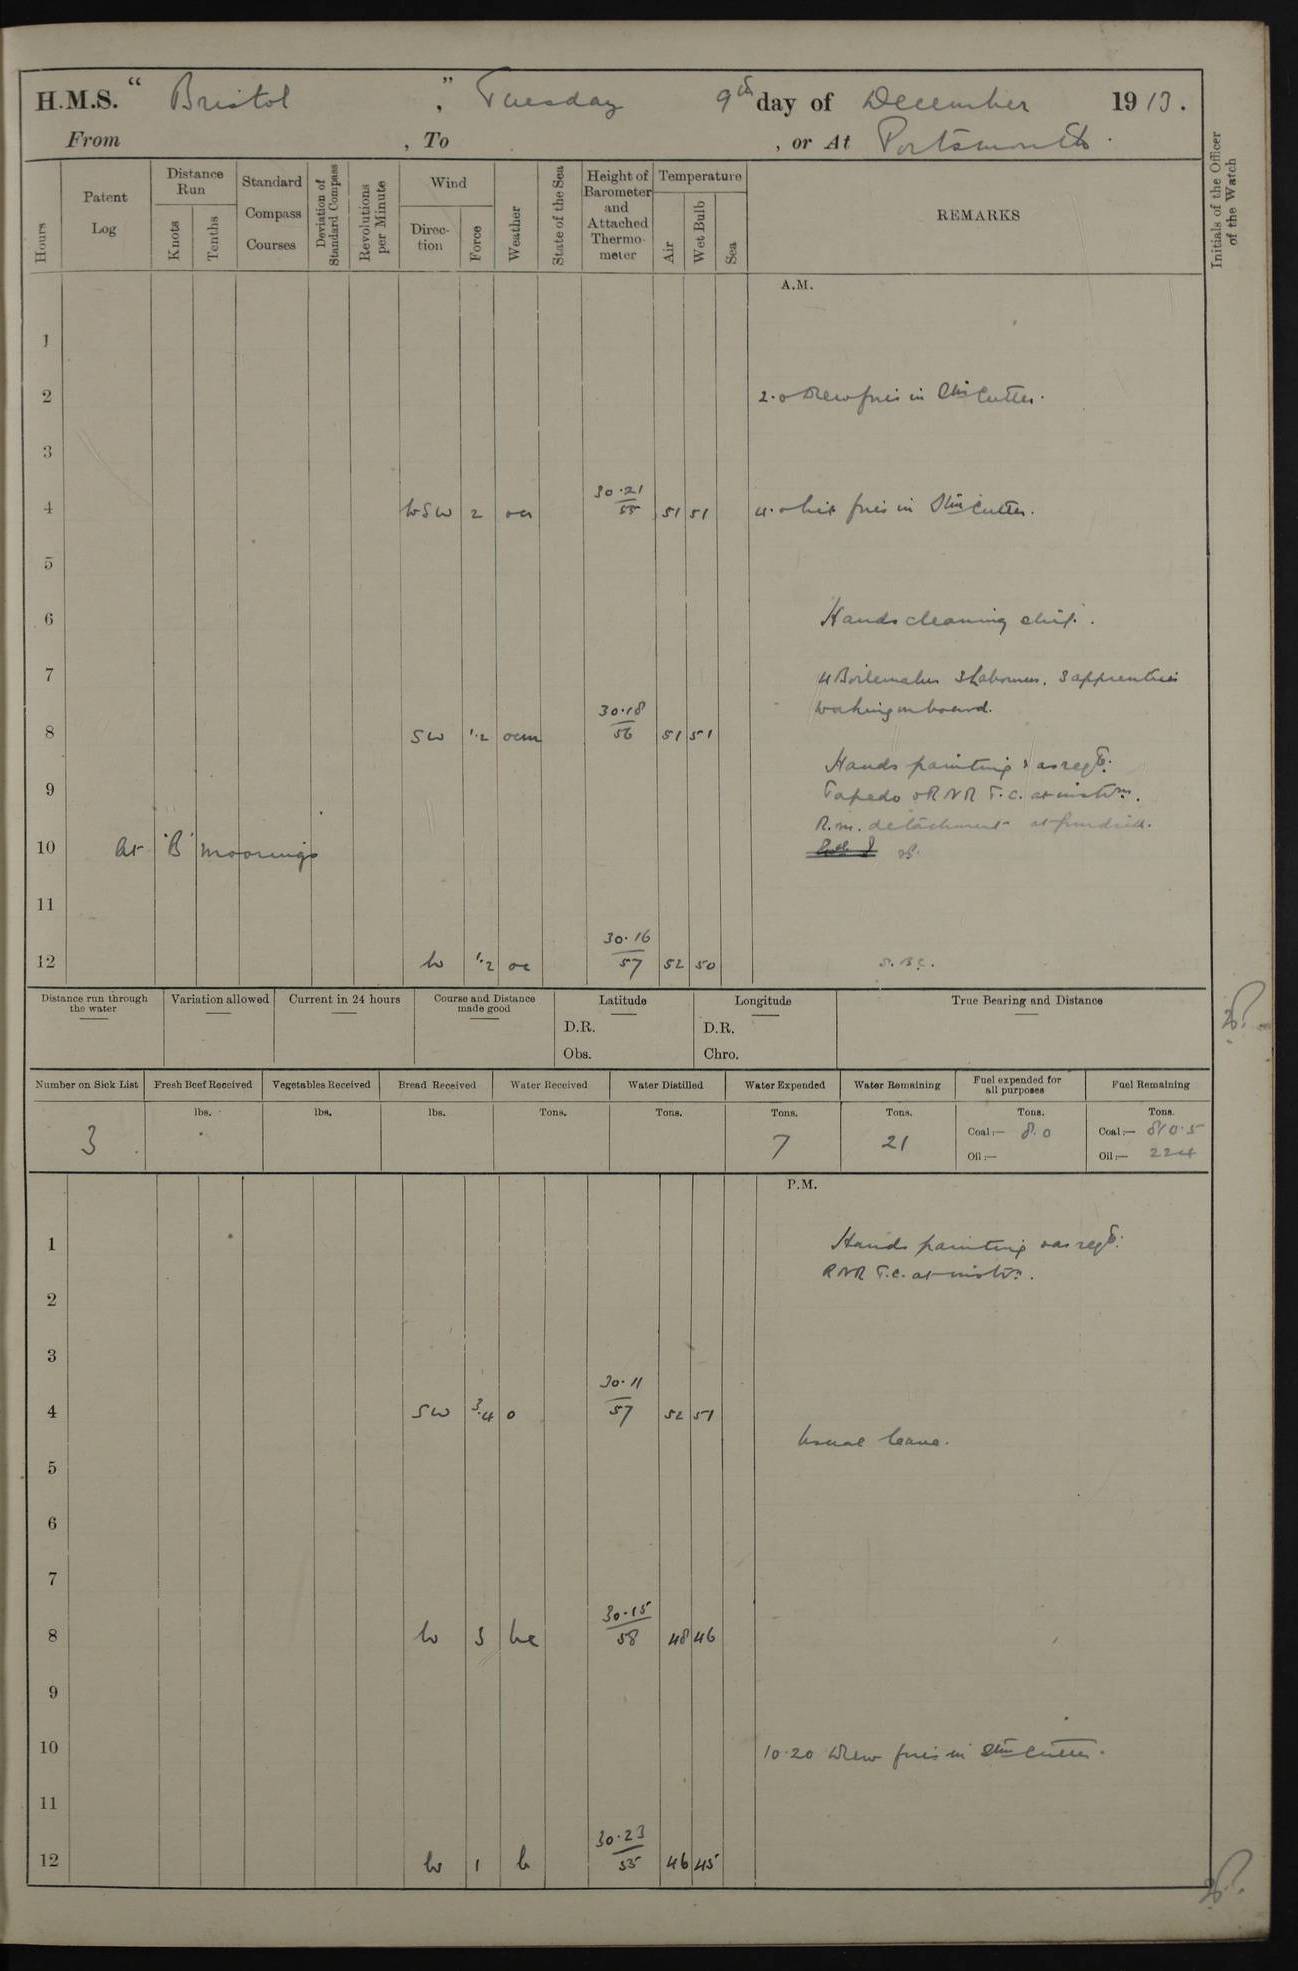 H.M.S. “ Bristol ”, Tuesday 9th day of December 1913.
From , To , or At Portsmouth.
Hours
Patent Log
Distance Run
Knots
Tenths
Standard Compass Courses
Deviation of Standard Compass
Revolutions per Minute
Wind
Direction
Force
Weather
State of the Sea
Height of Barometer and Attached Thermometer
Temperature
Air
Wet Bulb
Sea
REMARKS
Initials of the Officer of the Watch
A.M.
1
2 2.0 Drew fires in Stm Cutter.
3
4 WSW 2 oc 30.21/55 51 51 4.0 lit fires in Stm Cutter.
5
6 Hands cleaning ship.
7 4 Boilermakers 3 Labourers, 3 apprentices
working on board.
8 SW 1.2 ocm 30.18/56 51 51
Hands painting & as reqd.
9 Torpedo & RNR T.C. at instrn.
R.M. detachment at gundrill.
10 At 'B' moorings
11
12 W 1.2 oc 30.16/57 52 50
Distance run through the water
Variation allowed
Current in 24 hours
Course and Distance made good
Latitude
D.R.
Obs.
Longitude
D.R.
Chro.
True Bearing and Distance
Number on Sick List
3
Fresh Beef Received
lbs.
Vegetables Received
lbs.
Bread Received
lbs.
Water Received
Tons.
Water Distilled
Tons.
Water Expended
Tons.
7
Water Remaining
Tons.
21
Fuel expended for all purposes
Tons.
Coal:— 8.0
Oil:—
Fuel Remaining
Tons.
Coal:— 810.5
Oil:— 224
P.M.
1 Hands painting & as reqd.
RNR T.C. at instrn.
2
3
4 SW 3.4 o 30.11/57 52 51
Usual leave.
5
6
7
8 W 3 bc 30.15/58 48 46
9
10 10.20 Drew fires in Stm Cutter.
11
12 W 1 b 30.23/55 46 45